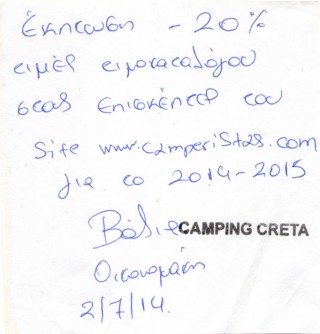 Έκπτωση -20%
τιμές τιμοκαταλόγου
στους επισκέπτες του
Site www.camperistas.com
για το 2014-2015
CAMPING CRETA
Οικονομάκη
2/7/14.